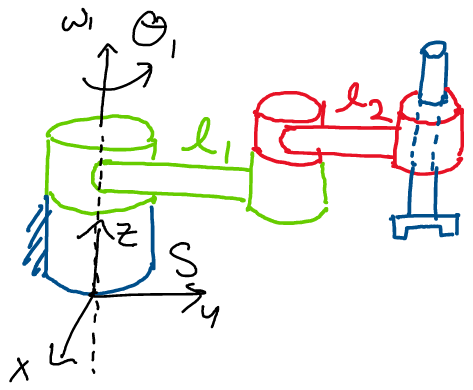 ω₁ θ₁
l₁
l₂
z
S
y
x